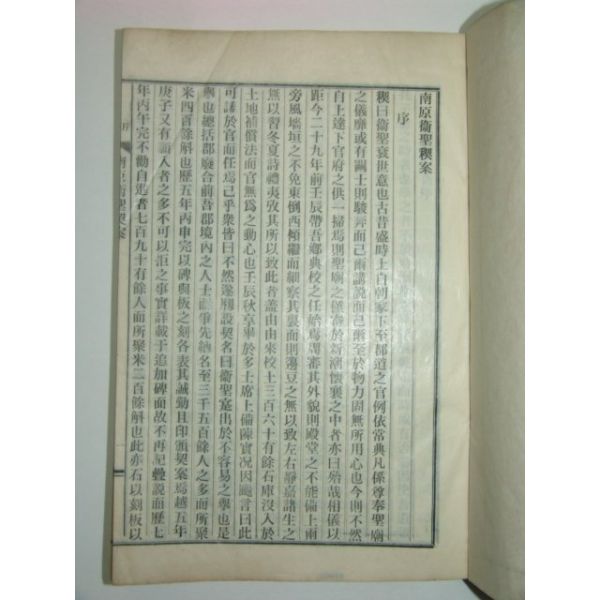 南原衞聖稧案
序
稧曰衞聖衰世意也古昔盛時上自朝家下至都道之官例依常典凡係尊奉聖廟
之儀靡或有闕士則駿奔而已爾講說而已爾至於物力固無所用心也今則不然
自上達下官府之供一掃焉則聖廟之係養於新潮懷襄之中者亦曰殆哉相儀以
距今二十九年前壬辰帶吾鄕典校之任始焉周審其外貌則殿堂之不能備上雨
旁風墻垣之不免東倒西傾繼而細察其裏面則籩豆之無以致左右靜嘉諸生之
無以習冬夏詩禮夷攷其所以致此者蓋由由來校土三百六十有餘石庫沒入於
土地補償法而官無爲之動心也壬辰秋享畢於多士席上備陳實况因颺言曰此
可諉於官而任焉己乎衆皆曰不然遂刱設契名曰衞聖寔出於不容易之擧也是
擧也總括郡廢合前吾郡境內之人士爭先納名至三千五百餘人之多而所聚
米四百餘斛也歷五年丙申完以碑與板之刻各表其誠勤且印頒契案焉越五年
庚子又有願入者之多不可以拒之事實詳載于追加碑面故不再記疊說而歷七
年丙午完不勸自遝者七百九十有餘人而所聚米二百餘斛也此亦石以刻板以
序
南原衞聖契案